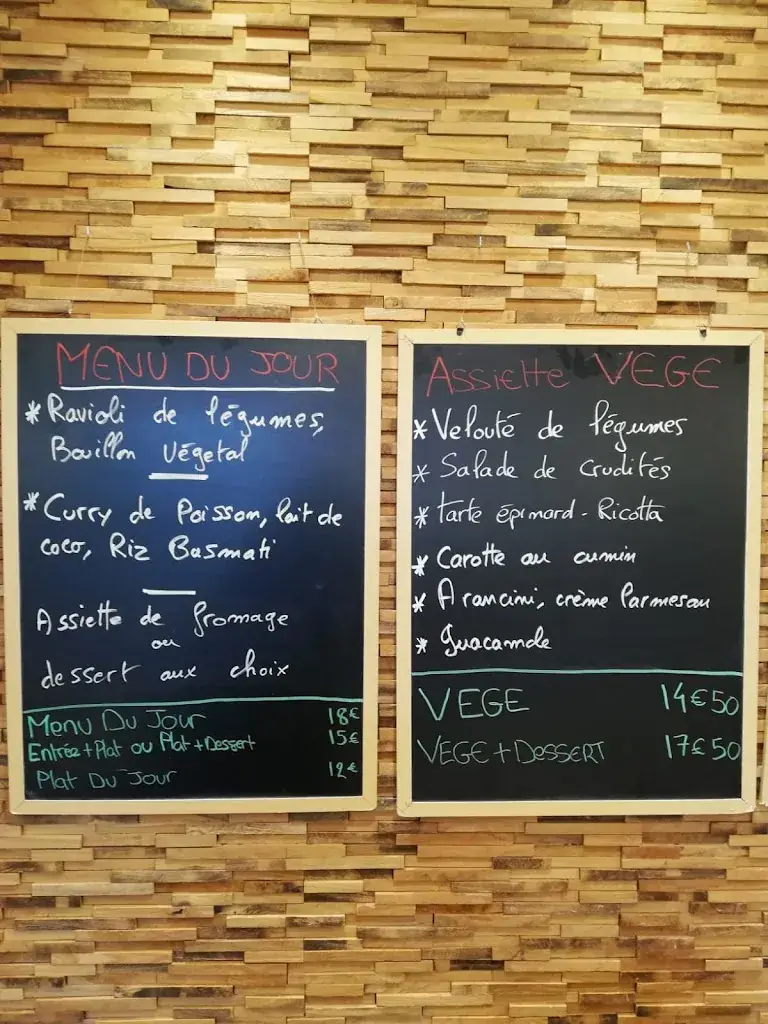 MENU DU JOUR
* Ravioli de légumes,
Bouillon Végetal
* Curry de Poisson, lait de
coco, Riz Basmati
Assiette de fromage
ou
dessert aux choix
Menu Du Jour 18€
Entrée+Plat ou Plat+Dessert 15€
Plat Du Jour 12€
Assiette VEGE
* Velouté de légumes
* Salade de crudités
* tarte épinard - Ricotta
* Carotte au cumin
* Arancini, crème Parmesan
* Guacamole
VEGE 14€50
VEGE+DESSERT 17€50